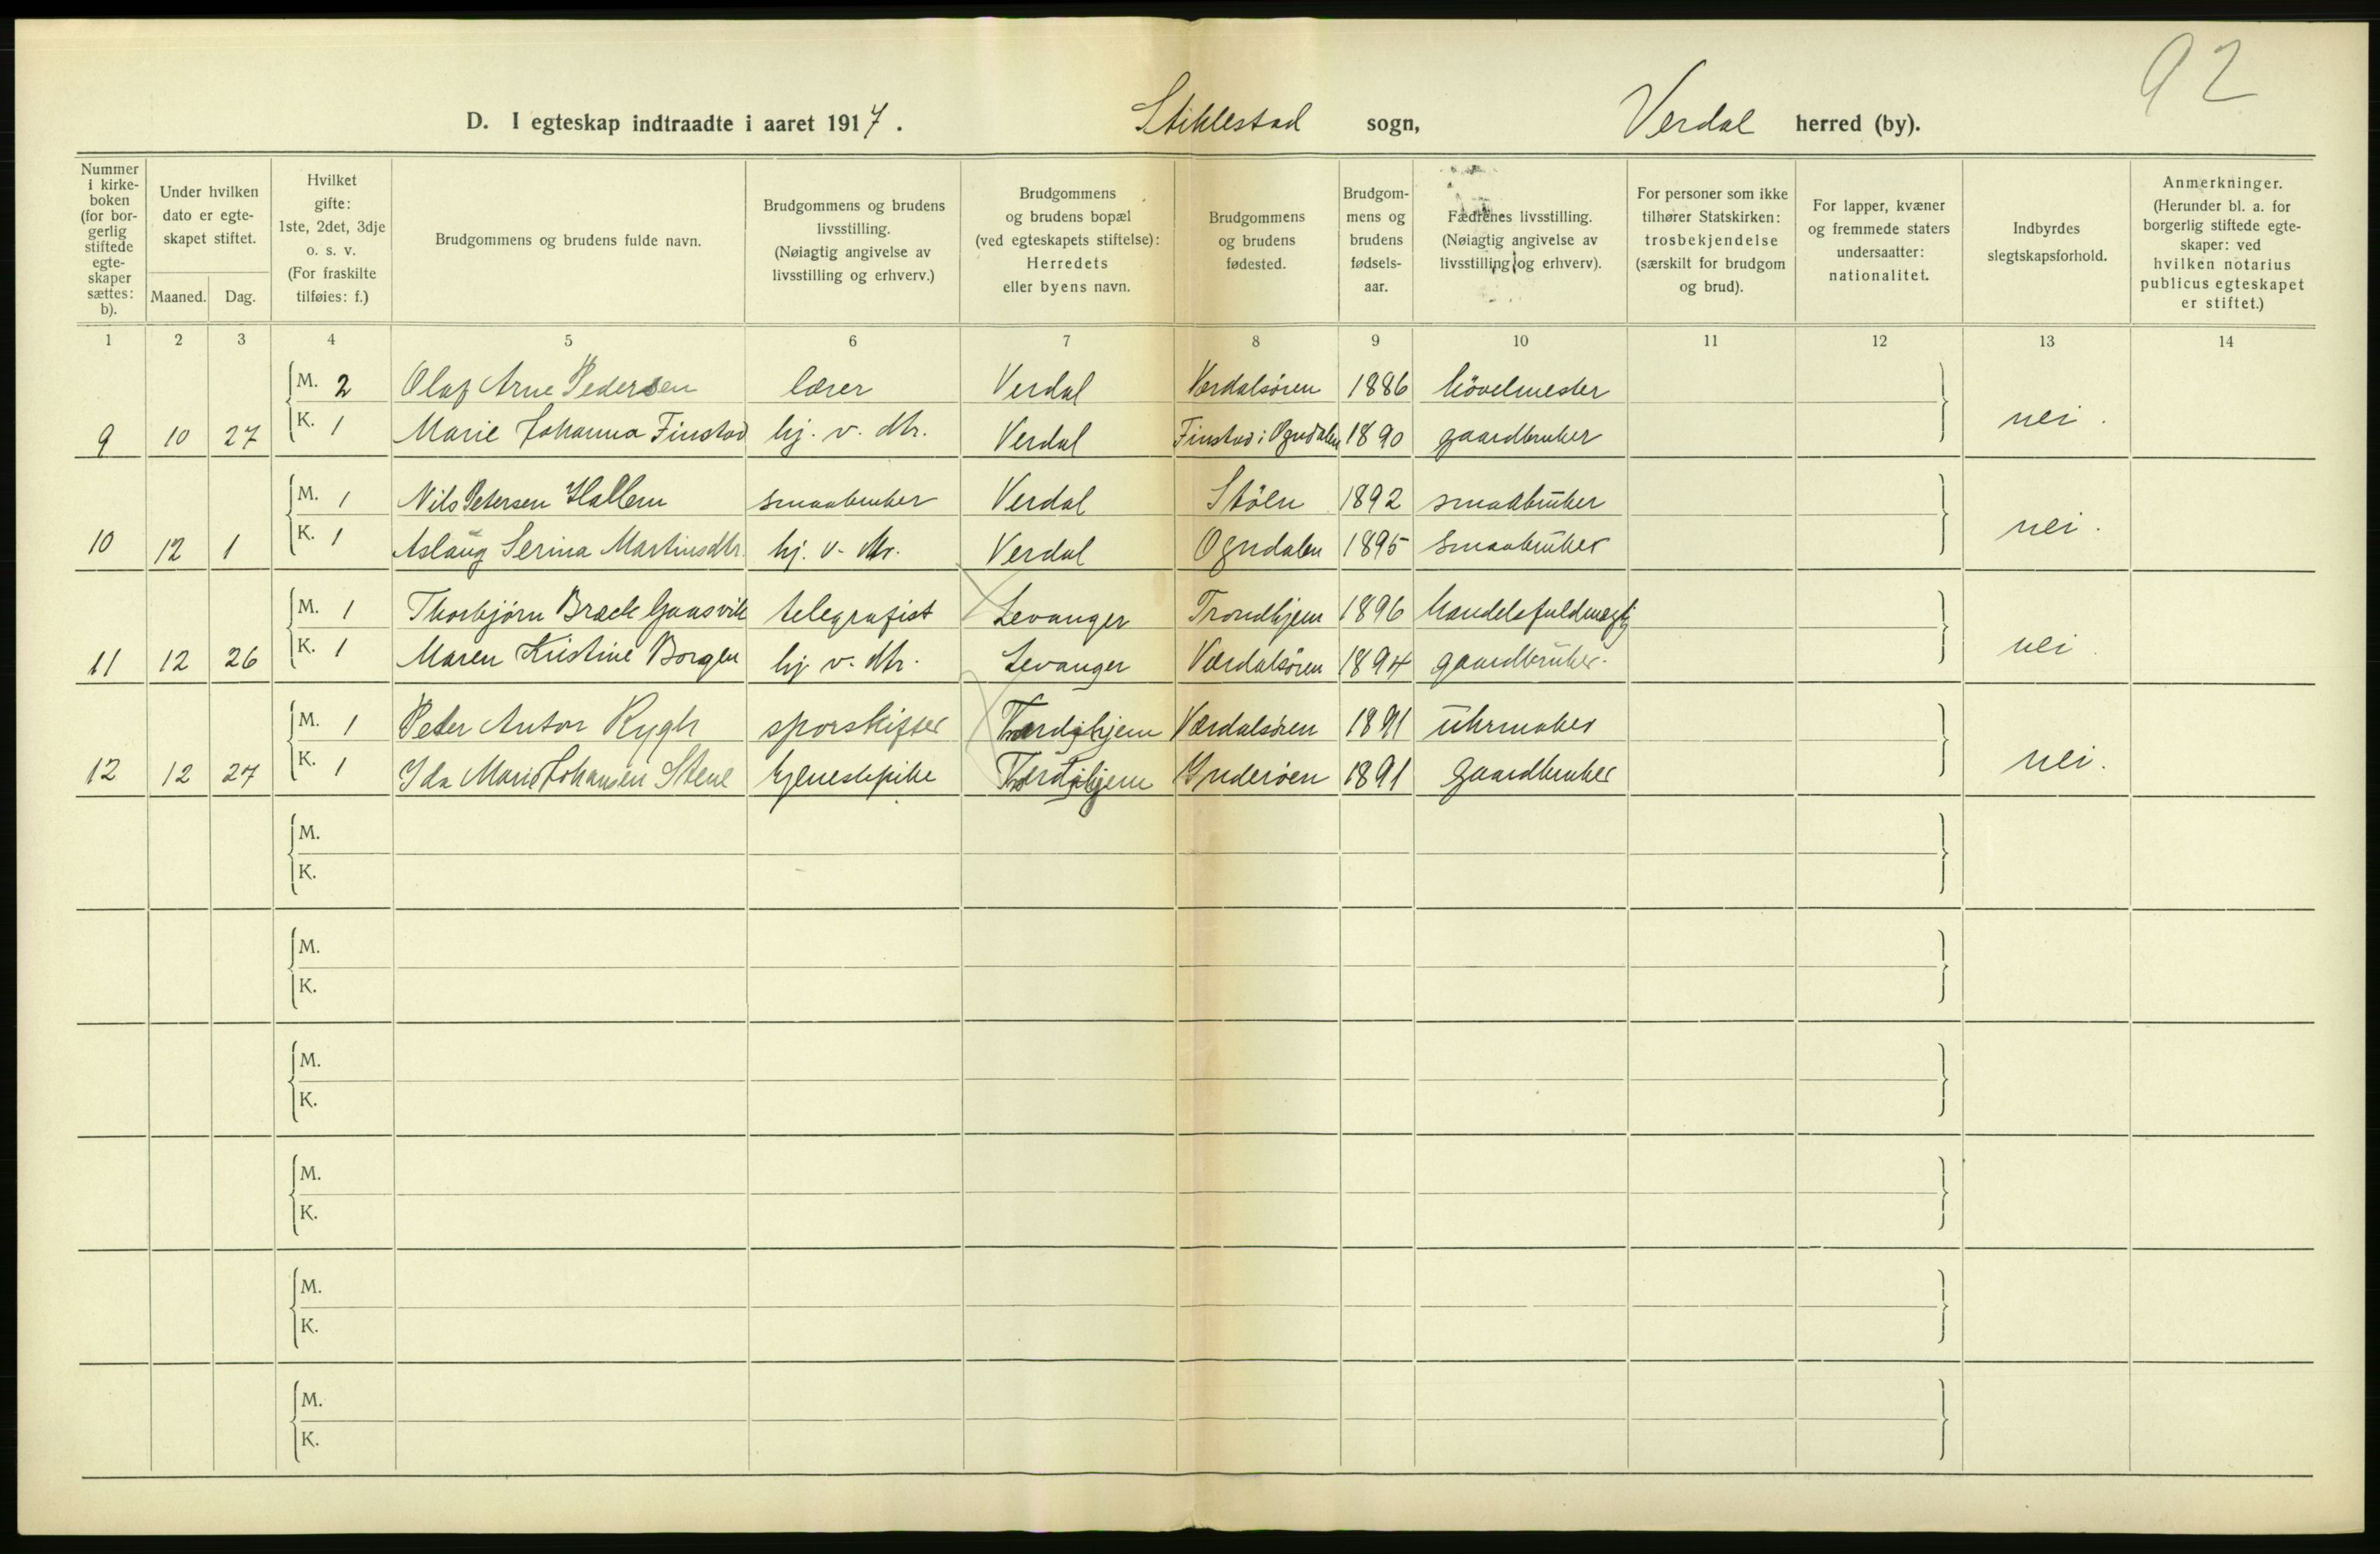 92
D. I egteskap indtraadte i aaret 1917. Stiklestad sogn, Verdal herred (by).
Nummer i kirke-boken (for bor-gerlig stiftede egte-skaper sættes: b).
Under hvilken dato er egte-skapet stiftet.
Maaned. Dag.
Hvilket gifte: 1ste, 2det, 3dje o. s. v. (For fraskilte tilføies: f.)
Brudgommens og brudens fulde navn.
Brudgommens og brudens livsstilling. (Nøiagtig angivelse av livsstilling og erhverv.)
Brudgommens og brudens bopæl (ved egteskapets stiftelse): Herredets eller byens navn.
Brudgommens og brudens fødested.
Brudgom-mens og brudens fødsels-aar.
Fædrenes livsstilling. (Nøiagtig angivelse av livsstilling og erhverv).
For personer som ikke tilhører Statskirken: trosbekjendelse (særskilt for brudgom og brud).
For lapper, kvæner og fremmede staters undersaatter: nationalitet.
Indbyrdes slegtskapsforhold.
Anmerkninger. (Herunder bl. a. for borgerlig stiftede egte-skaper: ved hvilken notarius publicus egteskapet er stiftet.)
1 2 3 4 5 6 7 8 9 10 11 12 13 14
M. 2 Olaf Arne Pedersen lærer Verdal Værdalsören 1886 hövelmester
9 10 27 K. 1 Marie Johanna Finstad hj. v. Mr. Verdal Finstad i Ogndalen 1890 gaardbruker nei.
M. 1 Nils Petersen Hallem smaabruker Verdal Stöln 1892 smaabruker
10 12 1 K. 1 Aslaug Serina Martinsdtr. hj. v. Mr. Verdal Ogndalen 1895 smaabruker nei.
M. 1 Thorbjörn Braek Gaasvik telegrafist Levanger Trondhjem 1896 handelsfuldmegtig
11 12 26 K. 1 Maren Kristine Borgen hj. v. Mr. Levanger Værdalsören 1894 gaardbruker. nei.
M. 1 Peter Anton Rygh sporskifter Værdalsören 1891 uhrmaker
12 12 27 K. 1 Ida Marie Johansen Stene tjenestepike Inderöen 1891 gaardbruker nei.
M.
K.
M.
K.
M.
K.
M.
K.
M.
K.
M.
K.